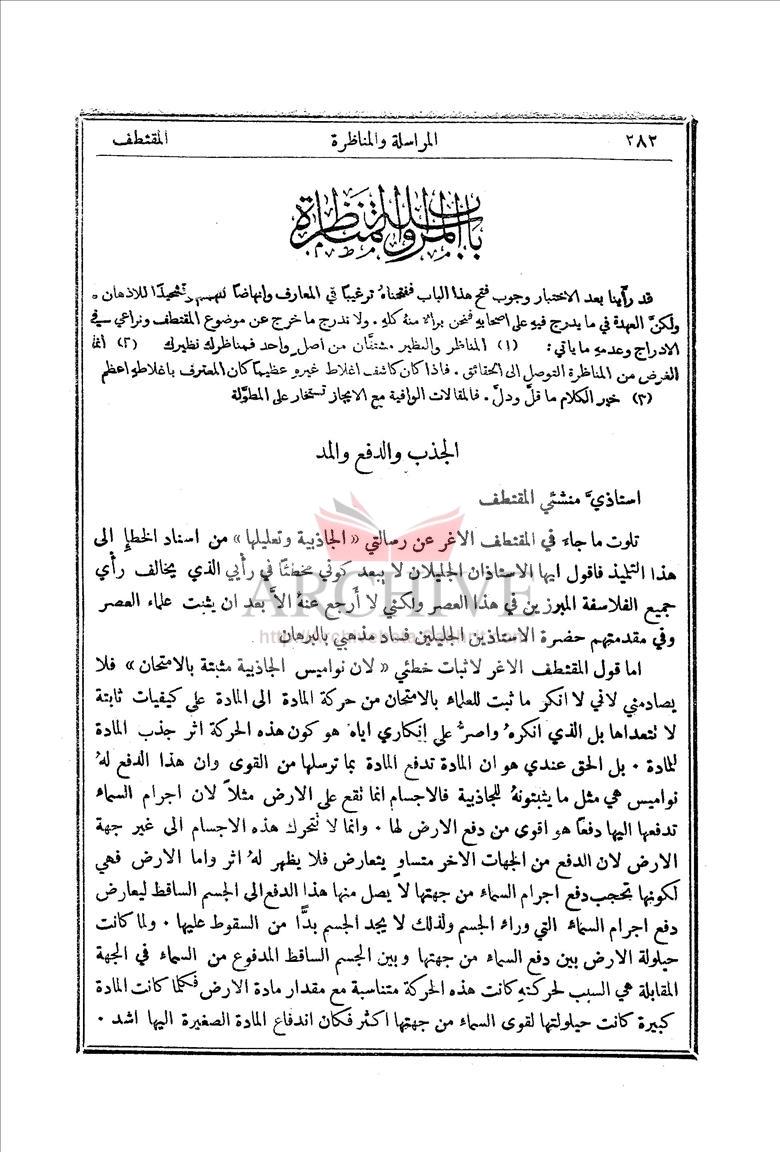 ٢٨٢ المراسلة والمناظرة المقتطف
باب المراسلة والمناظرة
قد رأينا بعد الاختبار وجوب فتح هذا الباب ففتحناهُ ترغيبًا في المعارف وإنهاضًا للهمم وتشحيذًا للاذهان .
ولكنَّ العهدة في ما يدرج فيهِ على اصحابهِ فنحن برالا منهُ كلهِ . ولا ندرج ما خرج عن موضوع المقتطف ونراعي في
الادراج وعدمهِ ما ياتي : (١) المناظر والنظير مشتقَّان من اصل واحد فمناظرك نظيرك (٢) انما
الغرض من المناظرة التوصل الى الحقائق . فاذا كان كاشف اغلاط غيرهِ عظيمًا كان المعترف باغلاطهِ اعظم
(٣) خير الكلام ما قلَّ ودلَّ . فالمقالات الوافية مع الايجاز تستخار على المطوَّلة
الجذب والدفع والمد
استاذيَّ منشئي المقتطف
تلوت ما جاء في المقتطف الاغر عن رسالتي «الجاذبية وتعليلها» من اسناد الخطإِ الى
هذا التلميذ فاقول ايها الاستاذان الجليلان لا يبعد كوني مخطئًا في رأيي الذي يخالف رأي
جميع الفلاسفة المبرزين في هذا العصر ولكني لا أرجع عنهُ الاَّ بعد ان يثبت علماء العصر
وفي مقدمتهم حضرة الاستاذين الجليلين فساد مذهبي بالبرهان
اما قول المقتطف الاغر لاثبات خطئي «لان نواميس الجاذبية مثبتة بالامتحان» فلا
يصادمني لاني لا انكر ما ثبت للعلماء بالامتحان من حركة المادة الى المادة على كيفيات ثابتة
لا تتعداها بل الذي انكرهُ واصرُّ على إنكاري اياه هو كون هذه الحركة اثر جذب المادة
للمادة . بل الحق عندي هو ان المادة تدفع المادة بما ترسلها من القوى وان هذا الدفع لهُ
نواميس هي مثل ما يثبتونهُ للجاذبية فالاجسام انما تقع على الارض مثلاً لان اجرام السماء
تدفعها اليها دفعًا هو اقوى من دفع الارض لها . وانما لا تتحرك هذه الاجسام الى غير جهة
الارض لان الدفع من الجهات الاخر متساوٍ يتعارض فلا يظهر لهُ اثر واما الارض فهي
لكونها تحجب دفع اجرام السماء من جهتها لا يصل منها هذا الدفع الى الجسم الساقط ليعارض
دفع اجرام السماء التي وراء الجسم ولذلك لا يجد الجسم بدًّا من السقوط عليها . ولما كانت
حيلولة الارض بين دفع السماء من جهتها وبين الجسم الساقط المدفوع من السماء في الجهة
المقابلة هي السبب لحركتهِ كانت هذه الحركة متناسبة مع مقدار مادة الارض فكلما كانت المادة
كبيرة كانت حيلولتها لقوى السماء من جهتها اكثر فكان اندفاع المادة الصغيرة اليها اشد .
ARCHIVE